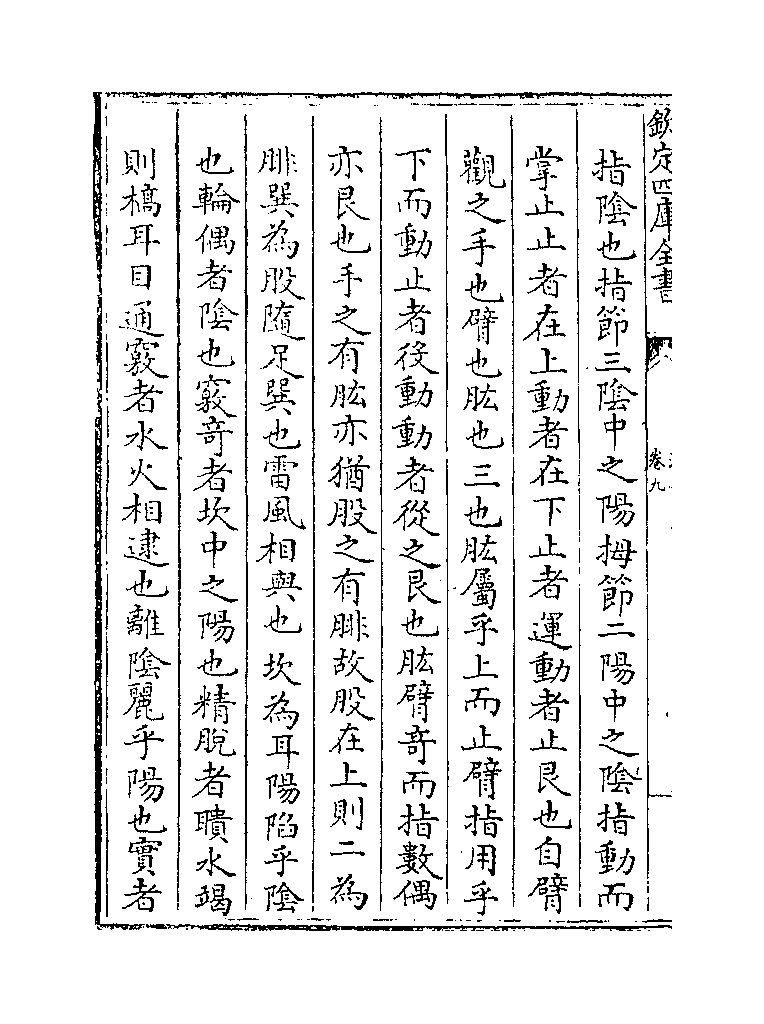 欽定四庫全書
卷九
指陰也指節三陰中之陽拇節二陽中之陰指動而
掌止止者在上動者在下止者運動者止艮也自臂
觀之手也臂也肱也三也肱屬乎上而止臂指用乎
下而動止者後動動者從之艮也肱臂竒而指數偶
亦艮也手之有肱亦猶股之有腓故股在上則二為
腓巽為股隨足巽也雷風相與也坎為耳陽陷乎陰
也輪偶者陰也竅竒者坎中之陽也精脫者聵水竭
則槁耳目通竅者水火相逮也離陰麗乎陽也實者